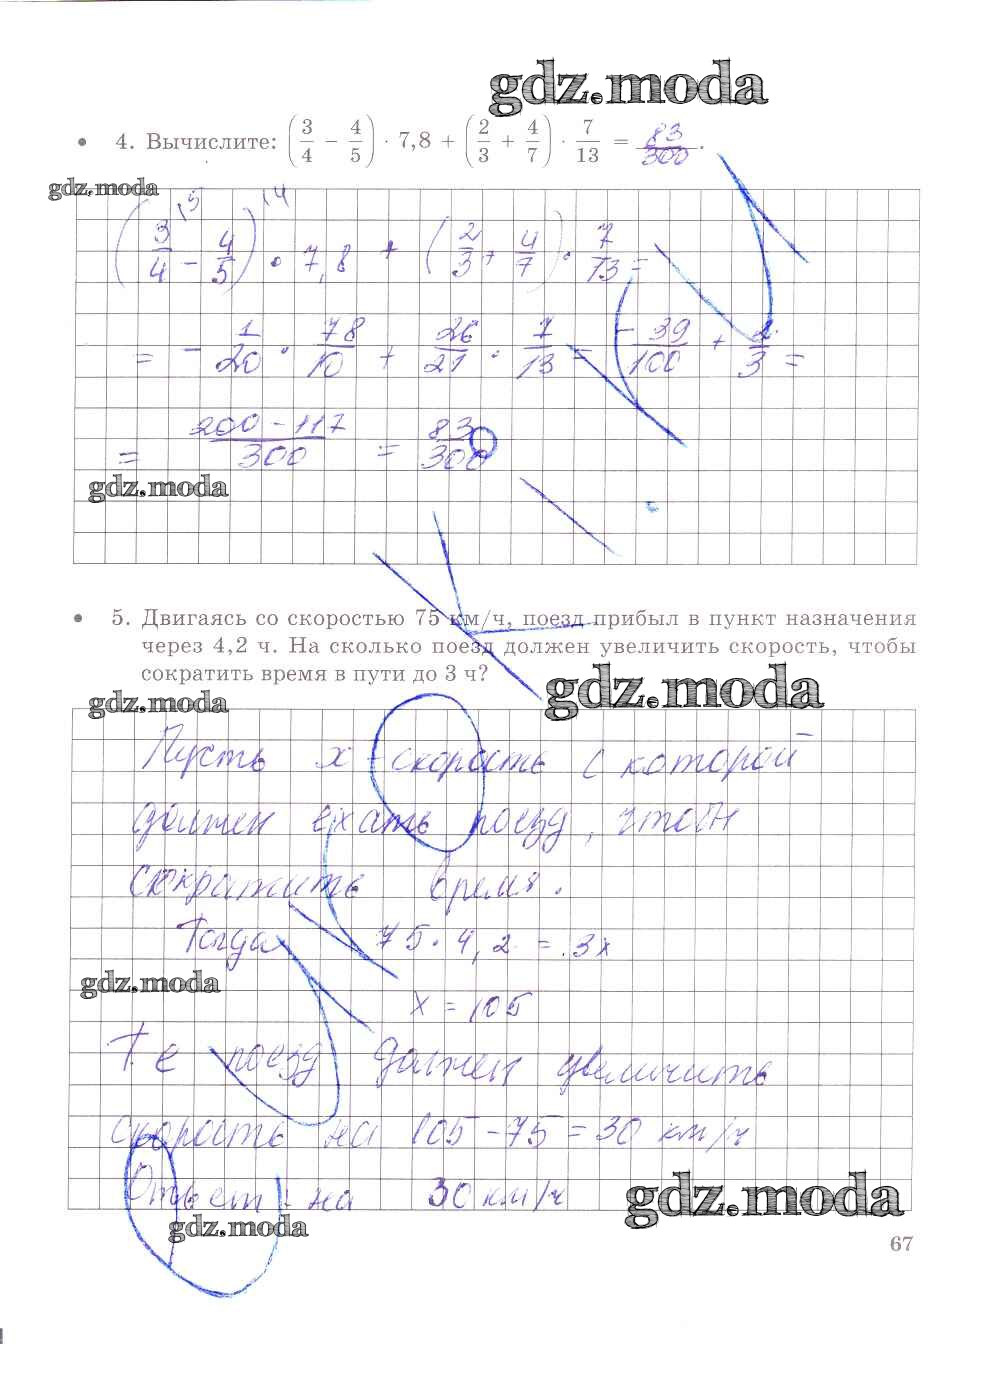 gdz.moda
• 4. Вычислите: (3/4 − 4/5) · 7,8 + (2/3 + 4/7) · 7/13 = 83/300.
gdz.moda
(3/4 \5 − 4/5) \4 · 7,8 + (2/3 + 4/7) · 7/13 =
= − 1/20 · 78/10 + 26/21 · 7/13 = − 39/100 + 2/3 =
= 200 − 117/300 = 83/300
gdz.moda
• 5. Двигаясь со скоростью 75 км/ч, поезд прибыл в пункт назначения
через 4,2 ч. На сколько поезд должен увеличить скорость, чтобы
сократить время в пути до 3 ч?
gdz.moda
gdz.moda
Пусть x – скорость с которой
должен ехать поезд, чтобы
сократить время.
Тогда 75 · 4,2 = 3x
gdz.moda
x = 105
Те поезд должен увеличить
скорость на 105 − 75 = 30 км/ч
Ответ: на 30 км/ч
gdz.moda
gdz.moda
67